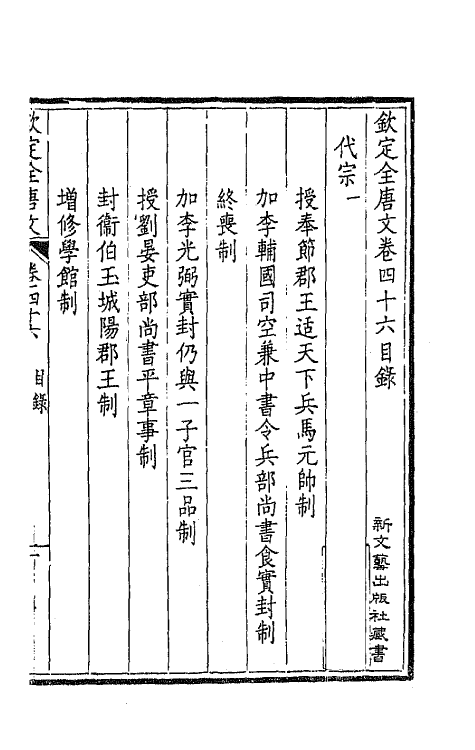 欽定全唐文卷四十六目錄
新文藝出版社藏書
代宗一
授奉節郡王适天下兵馬元帥制
加李輔國司空兼中書令兵部尚書食實封制
終喪制
加李光弼實封仍與一子官三品制
授劉晏吏部尚書平章事制
封衞伯玉城陽郡王制
增修學館制
欽定全唐文 卷四十六 目錄